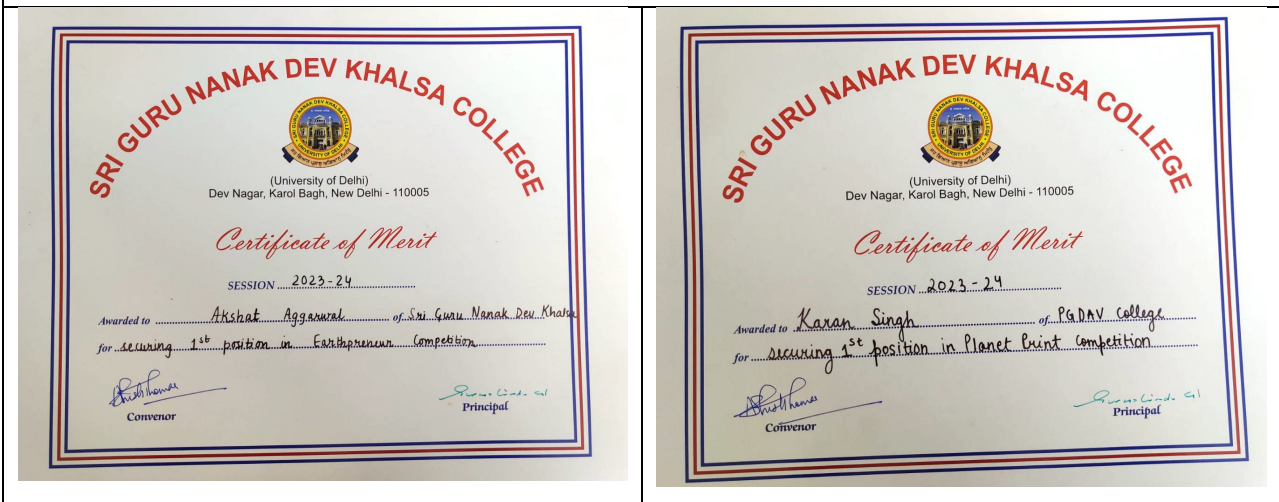 SRI GURU NANAK DEV KHALSA COLLEGE
SRI GURU NANAK DEV KHALSA COLLEGE
UNIVERSITY OF DELHI
(University of Delhi)
Dev Nagar, Karol Bagh, New Delhi - 110005
Certificate of Merit
SESSION 2023-24
Awarded to Akshat Aggarwal of Sri Guru Nanak Dev Khalsa
for securing 1st position in Earthpreneur Competition
Convenor
Principal
SRI GURU NANAK DEV KHALSA COLLEGE
SRI GURU NANAK DEV KHALSA COLLEGE
UNIVERSITY OF DELHI
(University of Delhi)
Dev Nagar, Karol Bagh, New Delhi - 110005
Certificate of Merit
SESSION 2023-24
Awarded to Karan Singh of PGDAV College
for securing 1st position in Planet Print Competition
Convenor
Principal